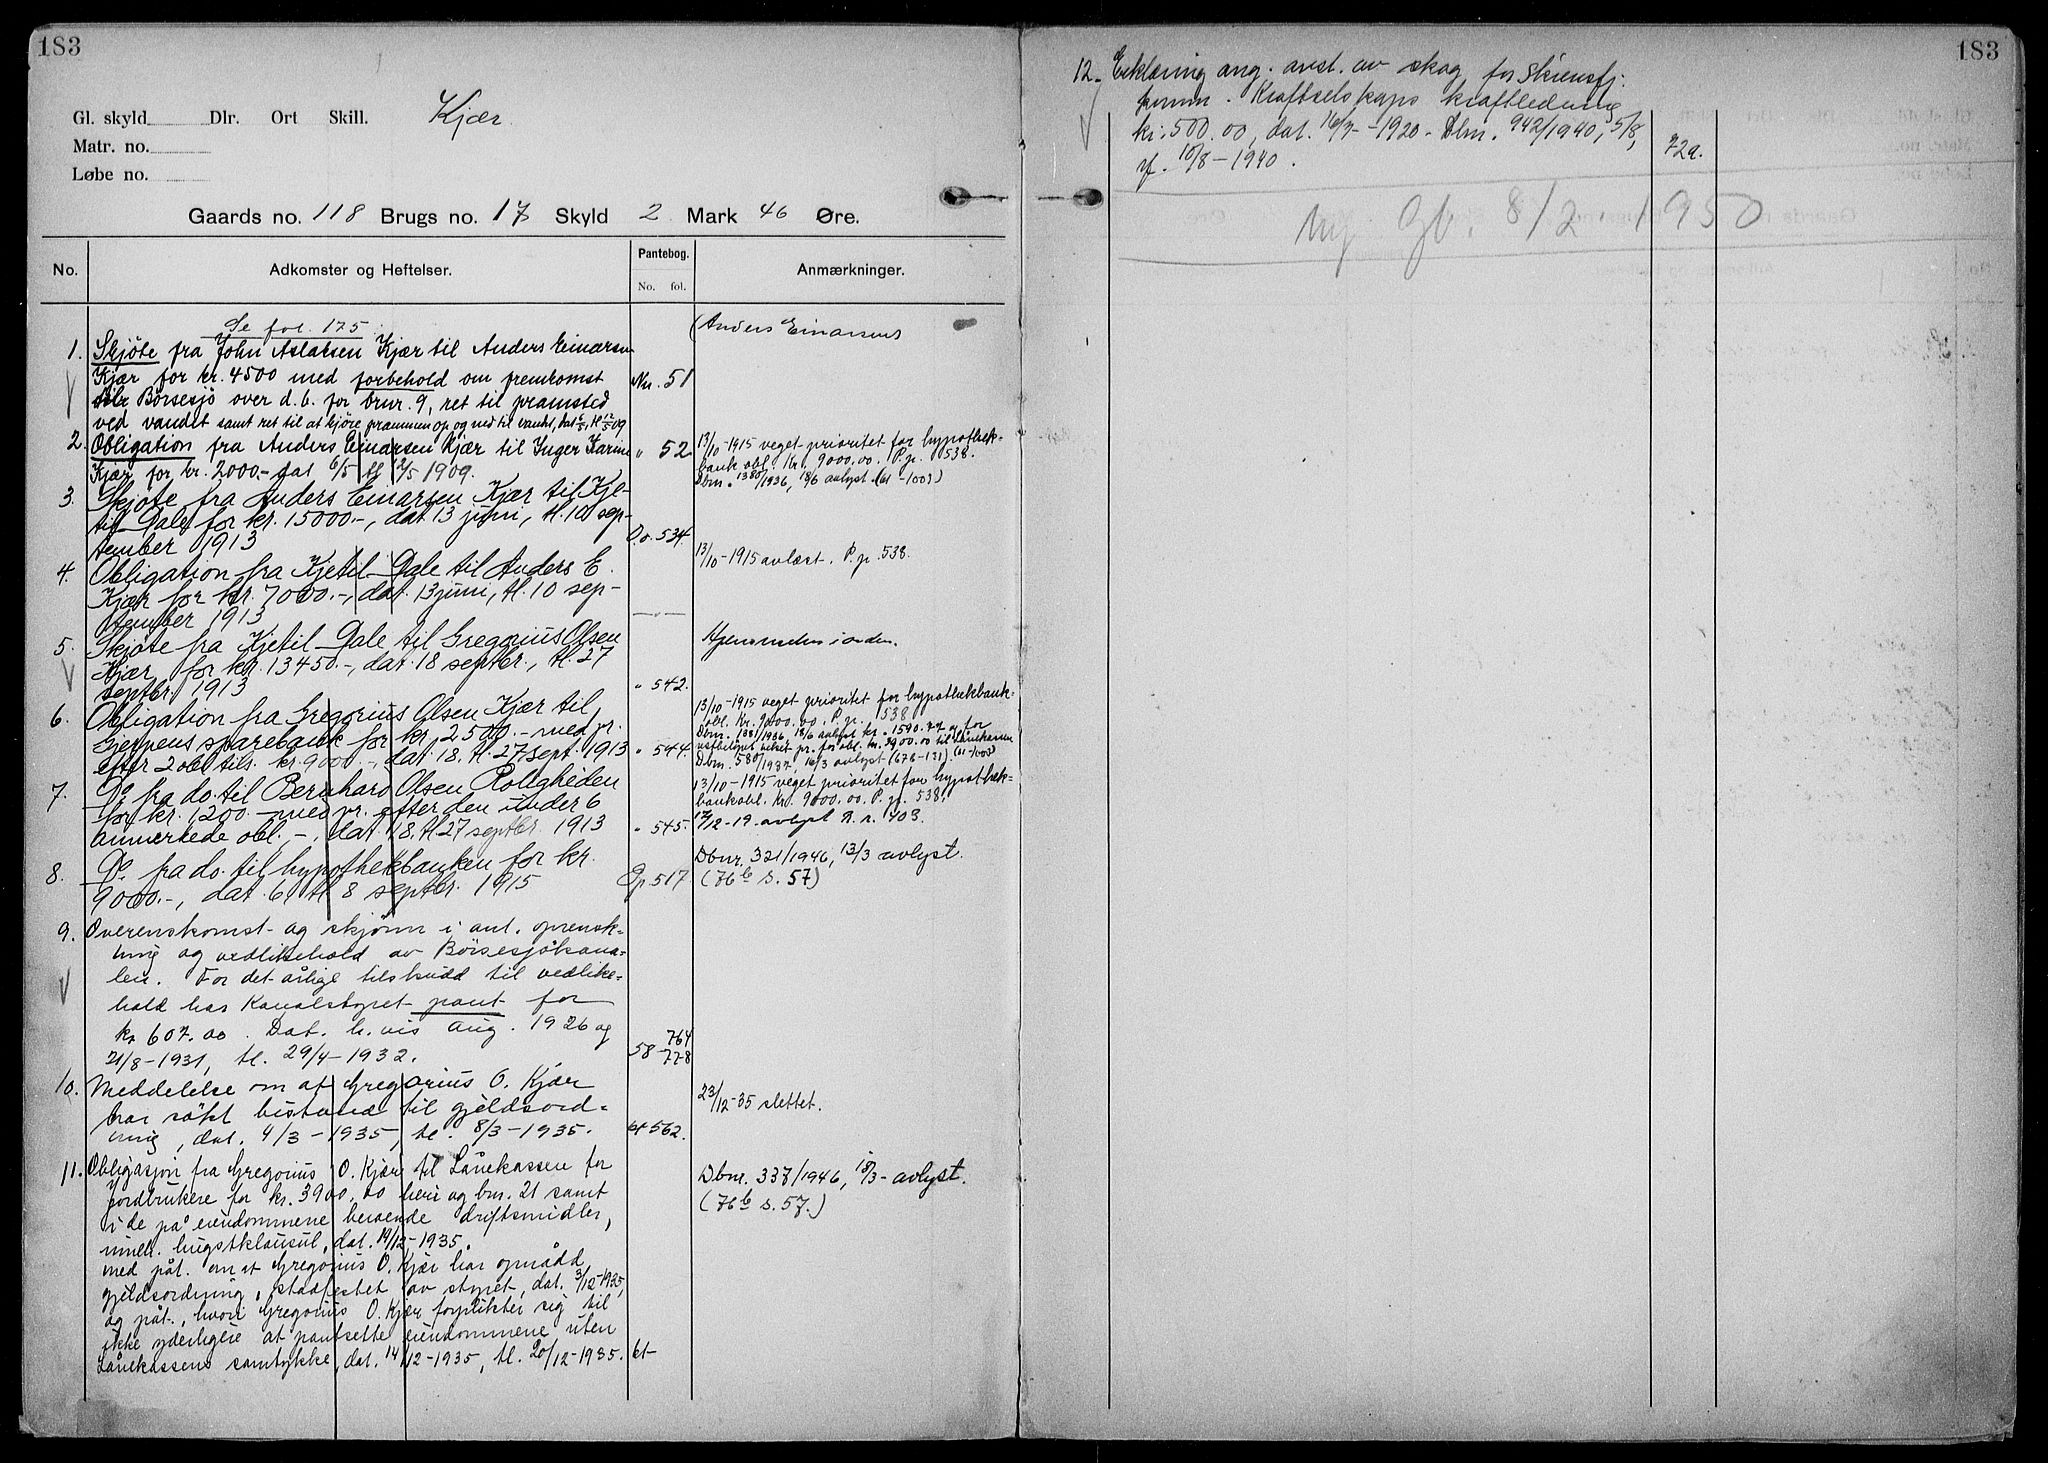 183
Gl. skyld Dlr. Ort Skill. Kjær
Matr. no.
Løbe no.
Gaards no. 118 Brugs no. 17 Skyld 2 Mark 46 Øre.
No. Adkomster og Heftelser. Pantebog. No. fol. Anmærkninger.
Se fol. 175.
(Anders Einarsen)
1. Skjöte fra John Aslaksen Kjær til Anders Einarsen
Kjær for kr. 4500 med forbehold om fremkomst Nr. 51
Börsesjö over d. b. for brnr. 9, ret til pramsted
ved vandet samt ret til at kjöre prammen op og ned til vandet, dat 6/5, tl 12/5 09
2. Obligation fra Anders Einarsen Kjær til Inger Karine
Kjær for kr. 2000.- dat 6/5 tl 12/5 1909. " 52
13/10-1915 veget prioritet for hypothek-
bank obl. Kr. 9000.00. P.p. 538.
Dbnr. 1380/1936, 18/6 avlyst (61-1003)
3. Skjöte fra Anders Einarsen Kjær til Kje-
til Dale for kr. 15000.-, dat. 13 juni, tl. 10 sep-
tember 1913 O.o. 534.
4. Obligation fra Kjetil Dale til Anders E.
Kjær for kr. 7000.-, dat. 13 juni, tl. 10 sep-
tember 1913 —"—
13/10-1915 avlæst. P.p. 538.
5. Skjöte fra Kjetil Dale til Gregorius Olsen
Kjær for kr. 13450.-, dat. 18 septbr., tl. 27
septbr. 1913 " 542.
Hjemmelen i orden.
6. Obligation fra Gregorius Olsen Kjær til
Gjerpens sparebank for kr. 2500.- med pr.
efter 2 obl. tils. kr. 9000.-, dat. 18. tl. 27 sept. 1913 " 544.
13/10-1915 veget prioritet for hypothekbank-
obl. Kr. 9000.00. P.p. 538
Dbnr. 1381/1936 18/6 avlyst kr. 1590.77 og for
restbelöpet veket pr. for obl. kr. 3900.00 til Lånekassen (61-1003)
Dbnr. 580/1937, 16/3 avlyst (678-131)
7. Do. fra do. til Bernhard Olsen Roligheden
for kr. 1200.- med pr. efter den under 6
anmerkede obl. -, dat. 18. tl 27 septbr. 1913 " 545.
13/10-1915 veget prioritet for hypothek-
bankobl. Kr. 9000.00. P.p. 538.
17/12-19 avlyst R.r. 403.
8. Do. fra do. til hypothekbanken for kr.
9000.-, dat. 6, tl 8 septbr. 1915 Op. 517
Dbnr. 321/1946, 13/3 avlyst.
(76b s. 57)
9. Overenskomst og skjönn i anl. oprensk-
ning og vedlikehold av Börsesjökana-
len. For det årlige tilskudd til vedlike-
hold har Kanalstyret pant for
kr 607.00. Dat. h.vis aug. 1926 og
21/8-1931, tl. 29/4-1932. 58 764-778
10. Meddelelse om at Gregorius O. Kjær
har sökt bistand til gjeldsord-
ning, dat. 4/3-1935, tl. 8/3-1935. 61 562.
23/12-35 slettet.
11. Obligasjon fra Gregorius O. Kjær til Lånekassen for
Jordbrukere for kr. 3900,00 heri og bnr. 21 samt
i de på eiendommene beroende driftsmidler,
innb. hugstklausul, dat. 14/12-1935.
med påt. om at Gregorius O. Kjær har opnådd
gjeldsordning, stadfestet av styret, dat. 3/12-1935,
og påt., hvori Gregorius O. Kjær forplikter sig til
ikke yderligere at pantsette eiendommene uten
Lånekassens samtykke, dat. 14/12-1935, tl. 20/12-1935. 61-
Dbnr. 337/1946, 18/3- avlyst.
(76b s. 57.)
183
12. Erklæring ang. avst. av skog for Skiensfj.
komm. Kraftselskaps kraftledning
kr. 500.00, dat. 16/7-1920 - Dbnr. 942/1940, 5/8,
tf. 10/8-1940. 72a.
Ny Gb. 8/2 1950